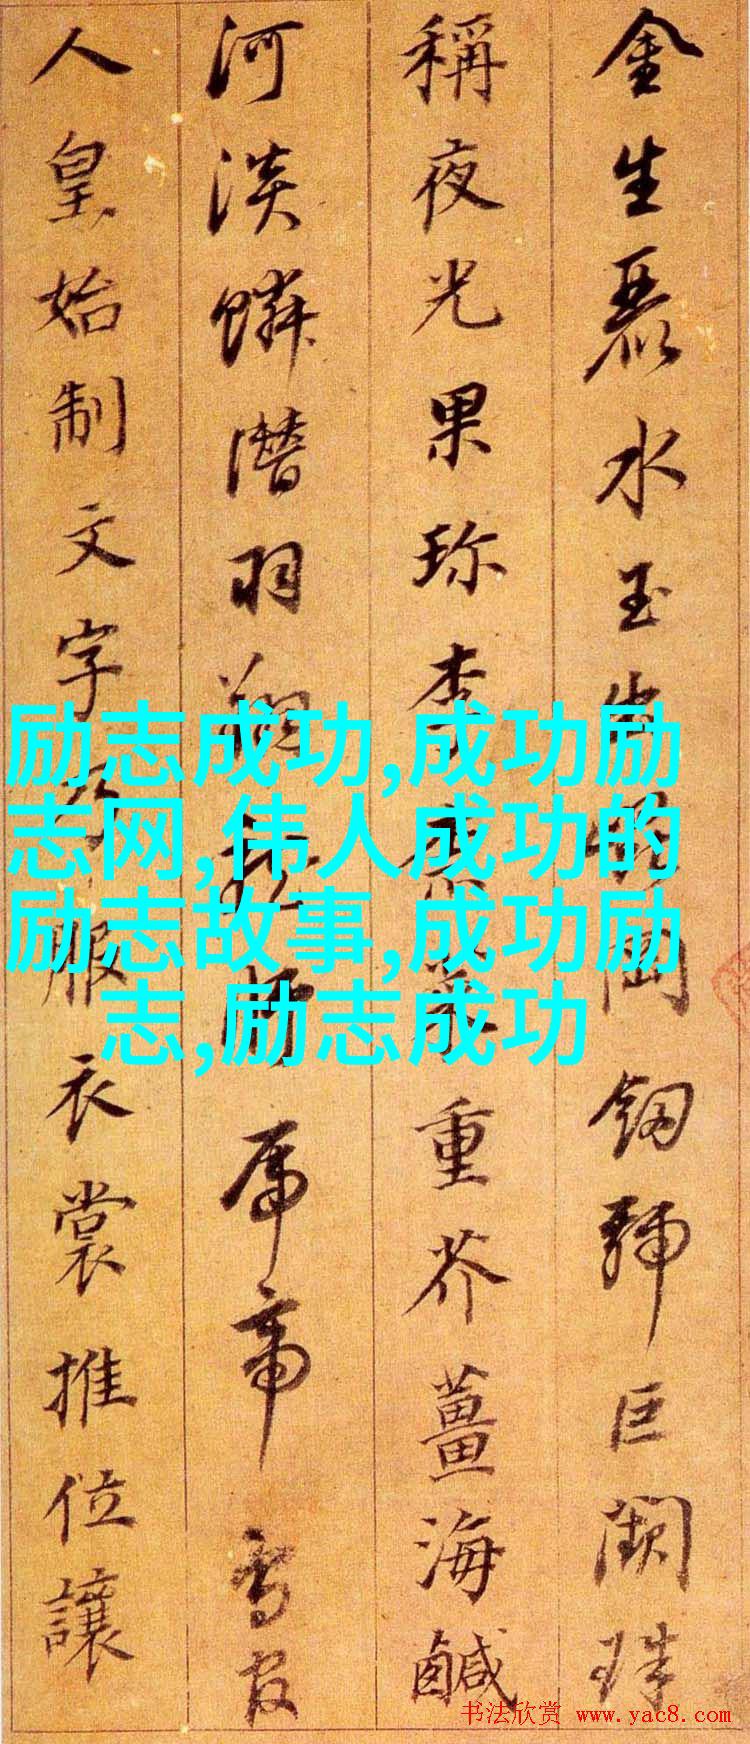 金生麗水玉出崐岡劒號巨闕珠
稱夜光果珍李柰菜重芥薑海鹹
河淡鱗潛羽翔龍師帝鳥官
人皇始制文字乃服衣裳推位讓
励志成功,成功励
志网,伟人成功的
励志故事,成功励
志,励志成功
书法欣赏 www.yac8.com